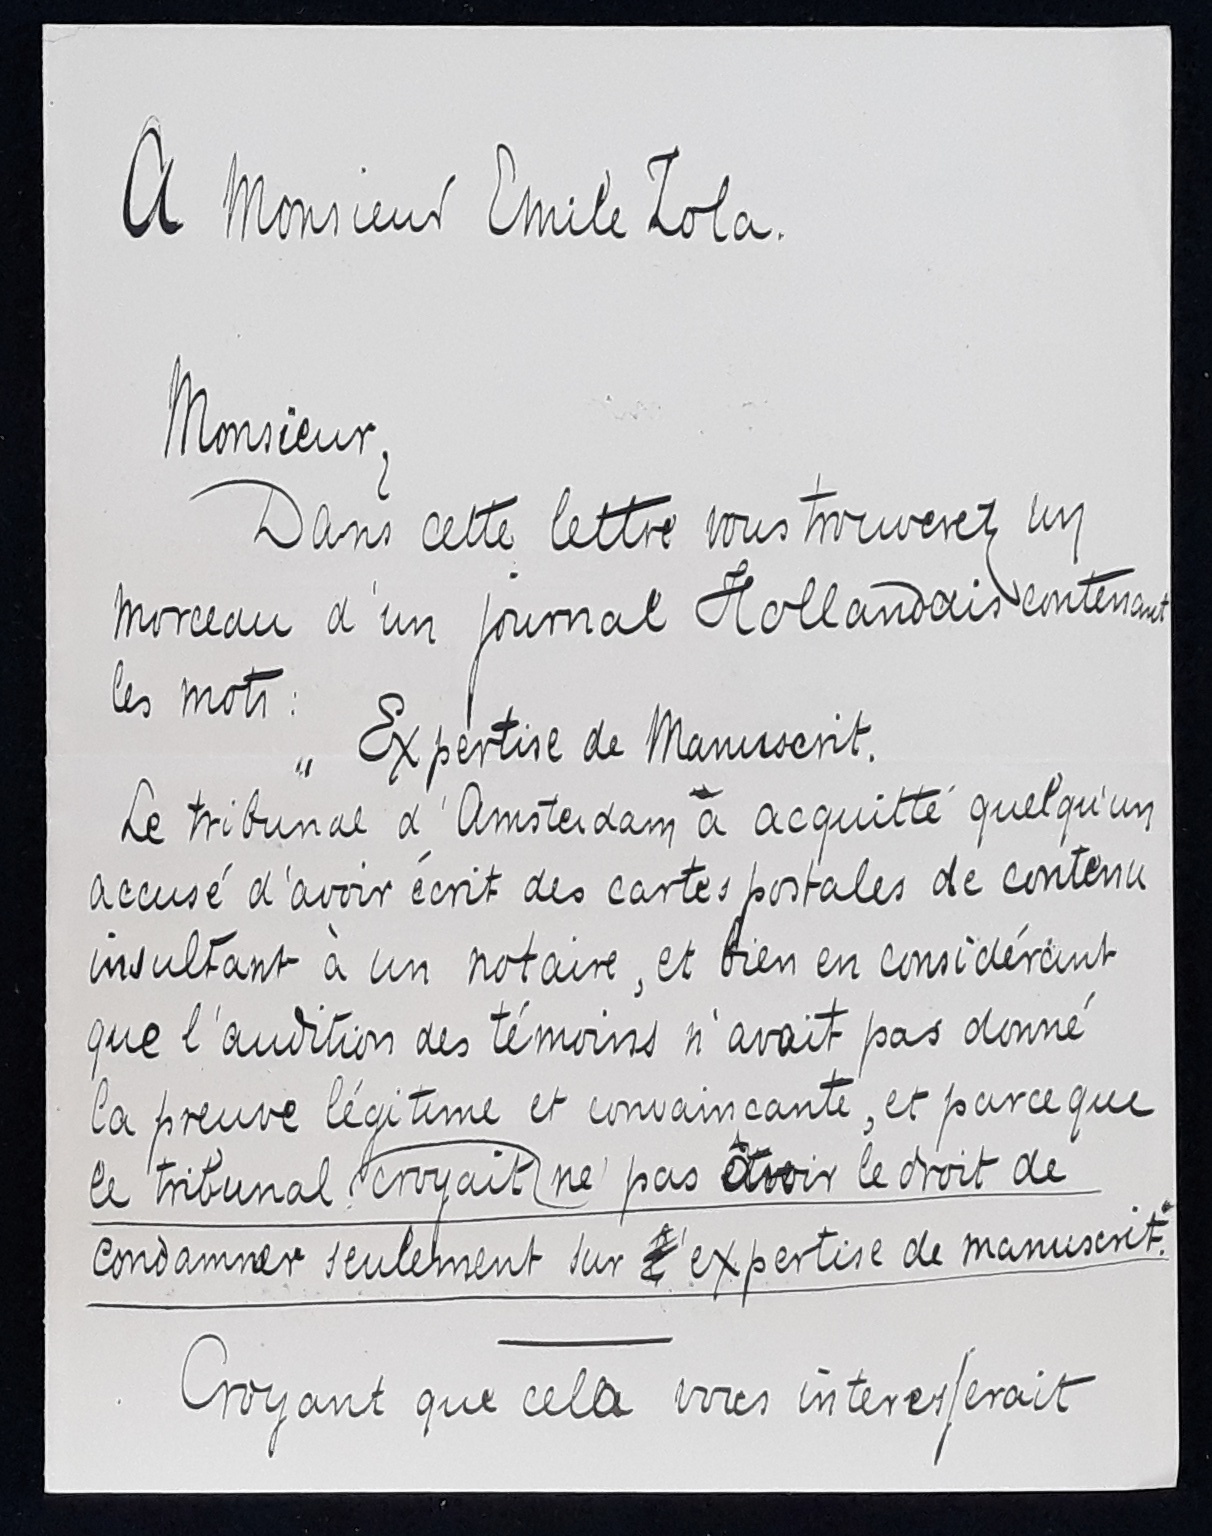 A Monsieur Emile Zola.
Monsieur,
Dans cette lettre vous trouverez un
morceau d'un journal Hollandais contenant
les mots:
„ Expertise de Manuscrit.
Le tribunal d'Amsterdam à acquitté quelqu'un
accusé d'avoir écrit des cartes postales de contenu
insultant à un notaire, et bien en considérant
que l'audition des témoins n'avait pas donné
la preuve légitime et convaincante, et parceque
le tribunal croyait ne pas avoir le droit de
condamner seulement sur l'expertise de manuscrit."
Croyant que cela vous interesserait